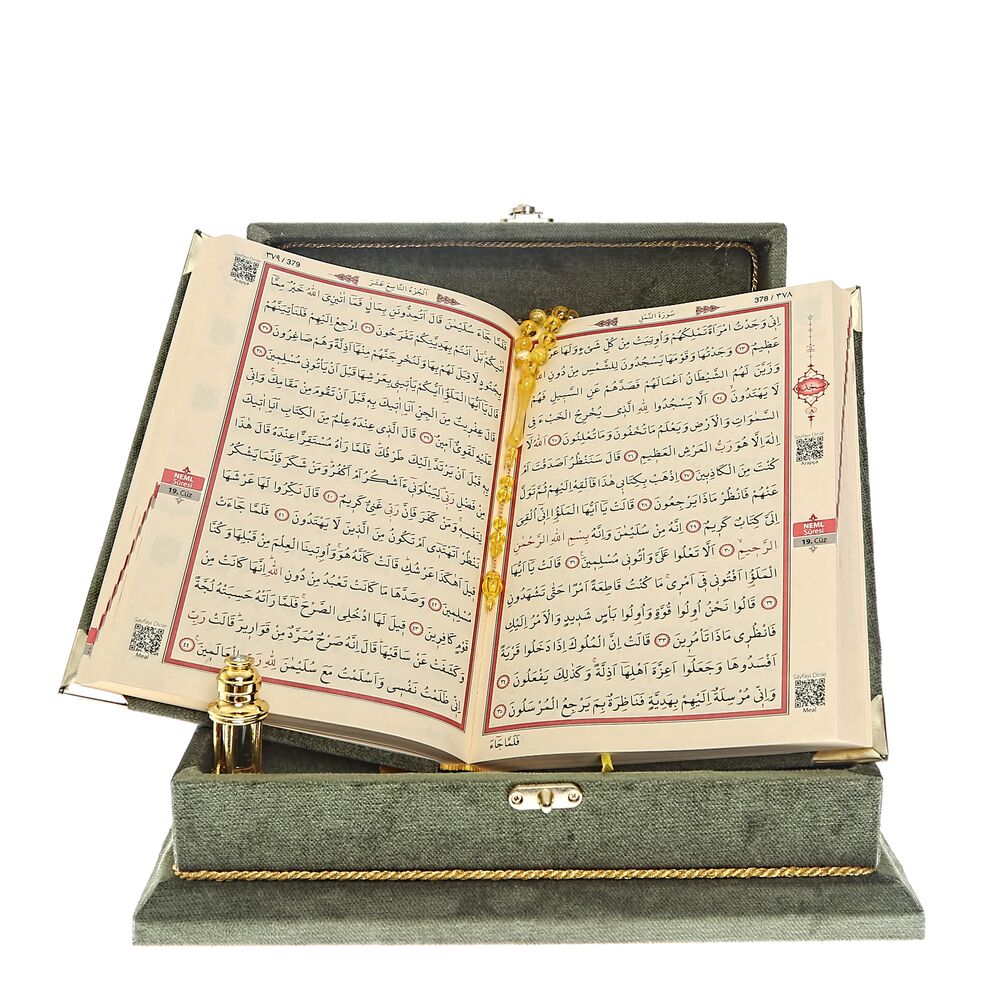 ٣٧٨ / 378
سُورَةُ النَّمْلِ
اِنّٖى وَجَدْتُ امْرَاَةً تَمْلِكُهُمْ وَاُوتِيَتْ مِنْ كُلِّ شَىْءٍ وَلَهَا عَرْشٌ
عَظٖيمٌ ﴿٢٣﴾ وَجَدْتُهَا وَقَوْمَهَا يَسْجُدُونَ لِلشَّمْسِ مِنْ دُونِ اللّٰهِ
وَزَيَّنَ لَهُمُ الشَّيْطَانُ اَعْمَالَهُمْ فَصَدَّهُمْ عَنِ السَّبٖيلِ فَهُمْ
لَا يَهْتَدُونَ ﴿٢٤﴾ اَلَّا يَسْجُدُوا لِلّٰهِ الَّذٖى يُخْرِجُ الْخَبْءَ فِى
السَّمٰوَاتِ وَالْاَرْضِ وَيَعْلَمُ مَا تُخْفُونَ وَمَا تُعْلِنُونَ ﴿٢٥﴾ اَللّٰهُ لَا
اِلٰهَ اِلَّا هُوَ رَبُّ الْعَرْشِ الْعَظٖيمِ ﴿٢٦﴾ قَالَ سَنَنْظُرُ اَصَدَقْتَ اَمْ
كُنْتَ مِنَ الْكَاذِبٖينَ ﴿٢٧﴾ اِذْهَبْ بِكِتَابٖى هٰذَا فَاَلْقِهْ اِلَيْهِمْ ثُمَّ تَوَلَّ
عَنْهُمْ فَانْظُرْ مَاذَا يَرْجِعُونَ ﴿٢٨﴾ قَالَتْ يَا اَيُّهَا الْمَلَؤُا اِنّٖى اُلْقِىَ
اِلَىَّ كِتَابٌ كَرٖيمٌ ﴿٢٩﴾ اِنَّهُ مِنْ سُلَيْمٰنَ وَاِنَّهُ بِسْمِ اللّٰهِ الرَّحْمٰنِ
الرَّحٖيمِ ﴿٣٠﴾ اَلَّا تَعْلُوا عَلَىَّ وَاْتُونٖى مُسْلِمٖينَ ﴿٣١﴾ قَالَتْ يَا اَيُّهَا
الْمَلَؤُا اَفْتُونٖى فٖى اَمْرٖى مَا كُنْتُ قَاطِعَةً اَمْرًا حَتّٰى تَشْهَدُونِ
﴿٣٢﴾ قَالُوا نَحْنُ اُولُوا قُوَّةٍ وَاُولُوا بَاْسٍ شَدٖيدٍ وَالْاَمْرُ اِلَيْكِ
فَانْظُرٖى مَاذَا تَاْمُرٖينَ ﴿٣٣﴾ قَالَتْ اِنَّ الْمُلُوكَ اِذَا دَخَلُوا قَرْيَةً
اَفْسَدُوهَا وَجَعَلُوا اَعِزَّةَ اَهْلِهَا اَذِلَّةً وَكَذٰلِكَ يَفْعَلُونَ ﴿٣٤﴾
وَاِنّٖى مُرْسِلَةٌ اِلَيْهِمْ بِهَدِيَّةٍ فَنَاظِرَةٌ بِمَ يَرْجِعُ الْمُرْسَلُونَ ﴿٣٥﴾
فَلَمَّا جَاءَ
Sayfayı Dinle
Arapça
NEML
Sûresi
19. Cüz
Sayfayı Dinle
Meal
٣٧٩ / 379
اَلْجُزْءُ التَّاسِعَ عَشَرَ
فَلَمَّا جَاءَ سُلَيْمٰنَ قَالَ اَتُمِدُّونَنِ بِمَالٍ فَمَا اٰتٰينِىَ اللّٰهُ خَيْرٌ مِمَّا
اٰتٰيكُمْ بَلْ اَنْتُمْ بِهَدِيَّتِكُمْ تَفْرَحُونَ ﴿٣٦﴾ اِرْجِعْ اِلَيْهِمْ فَلَنَاْتِيَنَّهُمْ
بِجُنُودٍ لَا قِبَلَ لَهُمْ بِهَا وَلَنُخْرِجَنَّهُمْ مِنْهَا اَذِلَّةً وَهُمْ صَاغِرُونَ ﴿٣٧﴾
قَالَ يَا اَيُّهَا الْمَلَؤُا اَيُّكُمْ يَاْتٖينٖى بِعَرْشِهَا قَبْلَ اَنْ يَاْتُونٖى مُسْلِمٖينَ ﴿٣٨﴾
قَالَ عِفْرٖيتٌ مِنَ الْجِنِّ اَنَا اٰتٖيكَ بِهٖ قَبْلَ اَنْ تَقُومَ مِنْ مَقَامِكَ وَاِنّٖى
عَلَيْهِ لَقَوِىٌّ اَمٖينٌ ﴿٣٩﴾ قَالَ الَّذٖى عِنْدَهُ عِلْمٌ مِنَ الْكِتَابِ اَنَا اٰتٖيكَ
بِهٖ قَبْلَ اَنْ يَرْتَدَّ اِلَيْكَ طَرْفُكَ فَلَمَّا رَاٰهُ مُسْتَقِرًّا عِنْدَهُ قَالَ هٰذَا
مِنْ فَضْلِ رَبّٖى لِيَبْلُوَنٖى ءَاَشْكُرُ اَمْ اَكْفُرُ وَمَنْ شَكَرَ فَاِنَّمَا يَشْكُرُ
لِنَفْسِهٖ وَمَنْ كَفَرَ فَاِنَّ رَبّٖى غَنِىٌّ كَرٖيمٌ ﴿٤٠﴾ قَالَ نَكِّرُوا لَهَا عَرْشَهَا
نَنْظُرْ اَتَهْتَدٖى اَمْ تَكُونُ مِنَ الَّذٖينَ لَا يَهْتَدُونَ ﴿٤١﴾ فَلَمَّا جَاءَتْ
قٖيلَ اَهٰكَذَا عَرْشُكِ قَالَتْ كَاَنَّهُ هُوَ وَاُوتٖينَا الْعِلْمَ مِنْ قَبْلِهَا وَكُنَّا
مُسْلِمٖينَ ﴿٤٢﴾ وَصَدَّهَا مَا كَانَتْ تَعْبُدُ مِنْ دُونِ اللّٰهِ اِنَّهَا كَانَتْ مِنْ
قَوْمٍ كَافِرٖينَ ﴿٤٣﴾ قٖيلَ لَهَا ادْخُلِى الصَّرْحَ فَلَمَّا رَاَتْهُ حَسِبَتْهُ لُجَّةً
وَكَشَفَتْ عَنْ سَاقَيْهَا قَالَ اِنَّهُ صَرْحٌ مُمَرَّدٌ مِنْ قَوَارٖيرَ قَالَتْ رَبِّ
اِنّٖى ظَلَمْتُ نَفْسٖى وَاَسْلَمْتُ مَعَ سُلَيْمٰنَ لِلّٰهِ رَبِّ الْعَالَمٖينَ ﴿٤٤﴾
Sayfayı Dinle
Arapça
NEML
Sûresi
19. Cüz
Sayfayı Dinle
Meal